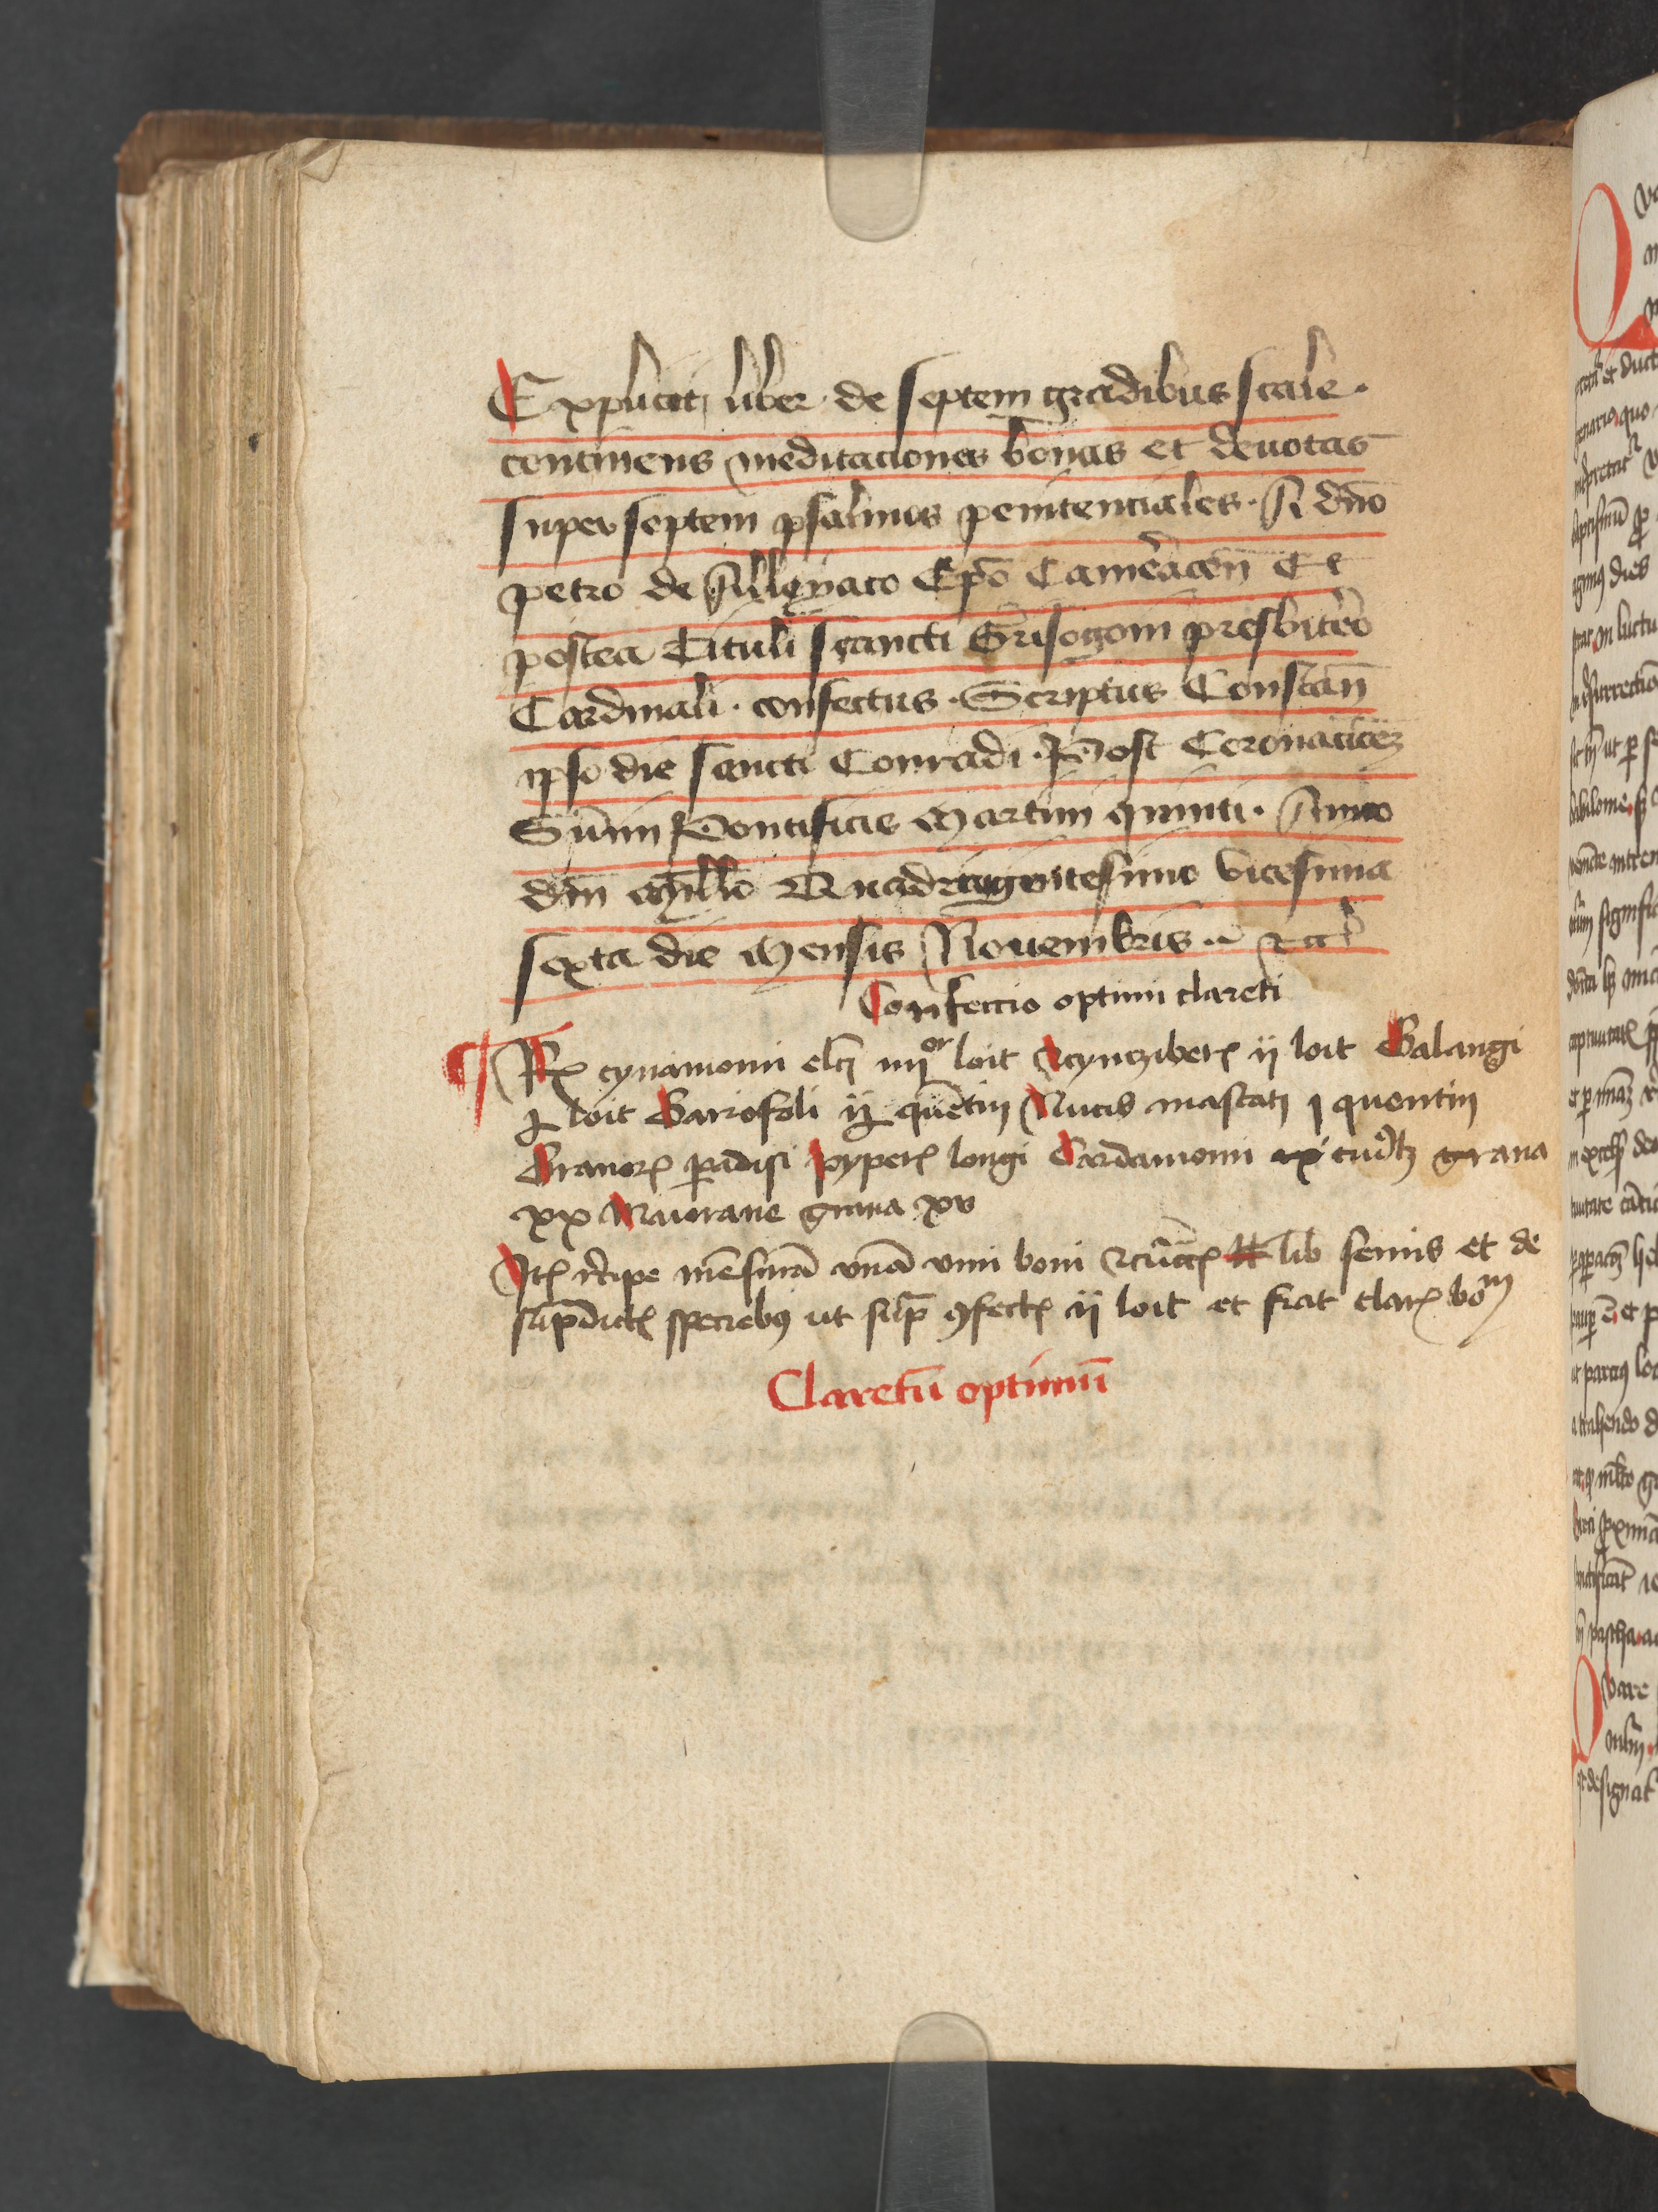 Explicit liber de septem gradibus scale.
continens meditaciones bonas et deuotas
super septem psalmos penitenciales. A dno
petro de Allyaco Epo Cameracen Et
postea Tituli sancti Grisogoni presbitero
Cardinali. confectus. Scriptus Constan
ipso die sancti Conradi. Post Coronacioez
Sumi Pontificis Martini quinti. Anno
dni Millo Quadringentesimo vicesima
sexta die Mensis Nouembris
Confeccio optimi clareti
Rx cynamomi elci iiijor loit zynziberis ij loit Galangi
loit Gariofoli ij quentin Nucis mascati j quentin
Granorum paradisi pyperis longi Cardamomi grana
xx Maiorane grana xv
Item recipe mensuram vnam vini boni lib semis et de
supradictis speciebus ut supra confectis ij loit et fiat claretum bonum
Claretum optimum